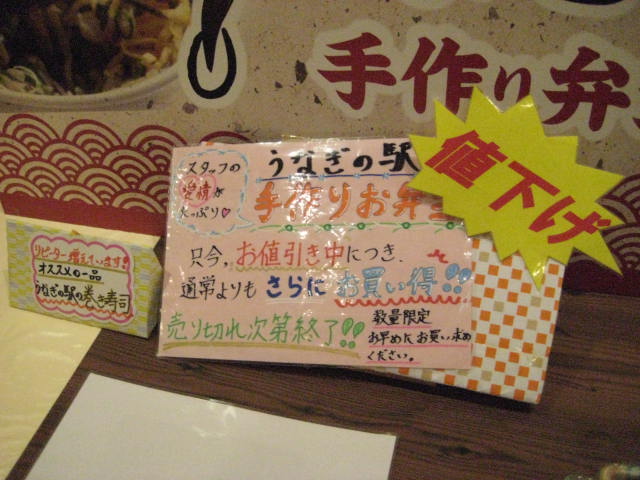 手作り弁
値下げ
スタッフの
愛情が
たっぷり
うなぎの駅
手作りお弁当
只今、お値引き中につき、
通常よりもさらにお買い得!!
売り切れ次第終了!!
数量限定
お早めにお買い求め
ください。
リピーター増えています!
オススメの一品
うなぎの駅の巻き寿司